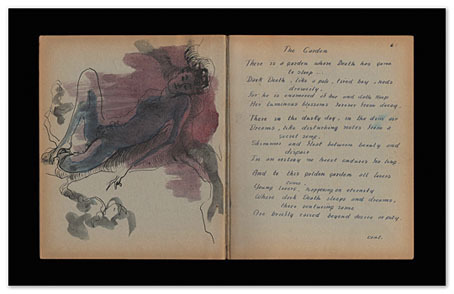 The Garden
There is a garden where Death has gone
to sleep ...
Dark Death, like a pale, tired boy, nods
drowsily,
For he is enamored of her and doth keep
Her luminous blossoms forever from decay.
There in the dusty day, in the dim air
Dreams, like disturbing notes from a
secret song,
Shimmer and float between beauty and
despair
In an ecstasy no heart endures too long
And to this golden garden all lovers
come,
Young lovers, happening on eternity
Where dark Death sleeps and dreams,
there venturing some
Are briefly raised beyond desire or pity.